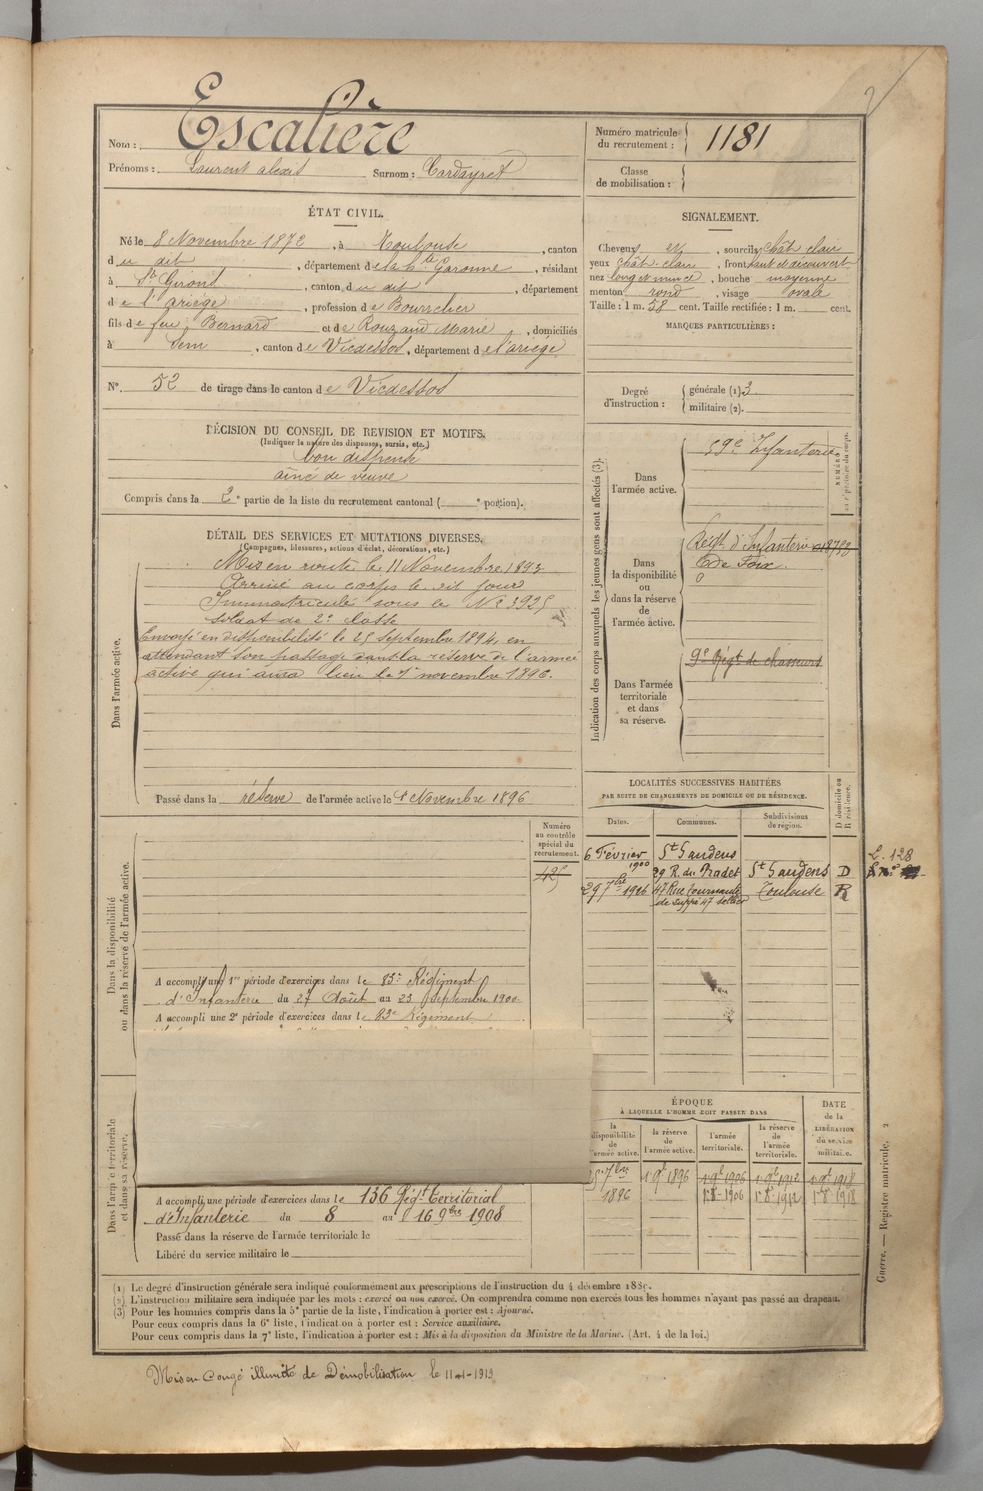 2
Nom : Escalière
Prénoms : Laurent alexis Surnom : Cardayret
Numéro matricule du recrutement : 1181
Classe de mobilisation :
ÉTAT CIVIL.
Né le 8 Novembre 1872, à Toulouse, canton
du dit, département de la hte Garonne, résidant
à St Girons, canton du dit, département
de l'ariège, profession de Bourrelier
fils de feu Bernard et de Rouzaud Marie, domiciliés
à Sem, canton de Vicdessos, département de l'ariège
N° 52 de tirage dans le canton de Vicdessos
SIGNALEMENT.
Cheveux et, sourcils chât clair
yeux chât. clair, front haut et découvert
nez long et mince, bouche moyenne
menton rond, visage ovale
Taille : 1 m. 58 cent. Taille rectifiée : 1 m. cent.
MARQUES PARTICULIÈRES :
Degré d'instruction : générale (1) 3
militaire (2).
DÉCISION DU CONSEIL DE REVISION ET MOTIFS.
(Indiquer la nature des dispenses, sursis, etc.)
bon dispensé
aîné de veuve
Compris dans la 2e partie de la liste du recrutement cantonal ( e portion).
DÉTAIL DES SERVICES ET MUTATIONS DIVERSES.
(Campagnes, blessures, actions d'éclat, décorations, etc.)
Dans l'armée active.
Mis en route le 11 Novembre 1893
Arrivé au corps le dit jour
Immatriculé sous le N° 3925
soldat de 2e classe
Envoyé en disponibilité le 25 septembre 1894, en
attendant son passage dans la réserve de l'armée
active qui aura lieu le 1er novembre 1896.
Passé dans la réserve de l'armée active le 1 Novembre 1896
Indication des corps auxquels les jeunes gens sont affectés (3).
Dans l'armée active.
59e Infanterie
Dans la disponibilité ou dans la réserve de l'armée active.
Régt. d'Infanterie
de Foix
Dans l'armée territoriale et dans sa réserve.
9e Régt de chasseurs
LOCALITÉS SUCCESSIVES HABITÉES
PAR SUITE DE CHANGEMENTS DE DOMICILE OU DE RÉSIDENCE.
Dates. Communes. Subdivisions de région. D domicile ou R résidence.
6 Février 1900 St Gaudens 29 R. du Pradet St Gaudens D
29 7bre 1906 47 Rue Tournante Toulouse R
L. 128
Numéro au contrôle spécial du recrutement.
425
Dans la disponibilité ou dans la réserve de l'armée active.
A accompli une 1re période d'exercices dans le 83e Régiment
d'Infanterie du 27 Août au 23 Septembre 1900.
A accompli une 2e période d'exercices dans le 83e Régiment
Dans l'armée territoriale et dans sa réserve.
A accompli une période d'exercices dans le 136 Régt territorial
d'Infanterie du 8 au 16 9bre 1908
Passé dans la réserve de l'armée territoriale le
Libéré du service militaire le
ÉPOQUE
À LAQUELLE L'HOMME DOIT PASSER DANS
la disponibilité de l'armée active. la réserve de l'armée active. l'armée territoriale. la réserve de l'armée territoriale.
DATE de la LIBÉRATION du service militaire.
25 7bre 1896 1 9e 1896 1 9e 1906 1 9e 1912 1 9e 1918
1er 8e 1906 1er 8e 1912 1er 8e 1918
(1) Le degré d'instruction générale sera indiqué conformément aux prescriptions de l'instruction du 4 décembre 1889.
(2) L'instruction militaire sera indiquée par les mots : exercé ou non exercé. On comprendra comme non exercés tous les hommes n'ayant pas passé au drapeau.
(3) Pour les hommes compris dans la 5e partie de la liste, l'indication à porter est : Ajourné.
Pour ceux compris dans la 6e liste, l'indication à porter est : Service auxiliaire.
Pour ceux compris dans la 7e liste, l'indication à porter est : Mis à la disposition du Ministre de la Marine. (Art. 4 de la loi.)
Guerre. — Registre matricule. 2
Mis en Congé illimité de Démobilisation le 11-1-1919